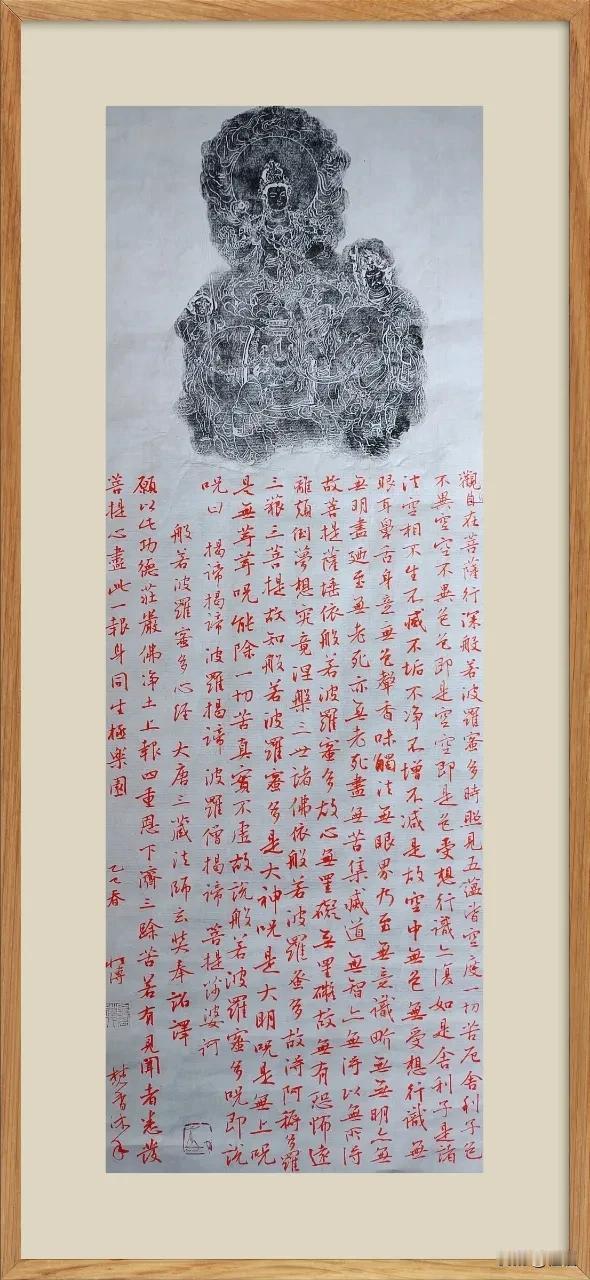 觀自在菩薩行深般若波羅蜜多時照見五蘊皆空度一切苦厄舍利子色
不異空空不異色色即是空空即是色受想行識亦復如是舍利子是諸
法空相不生不滅不垢不净不增不减是故空中無色無受想行識無
眼耳鼻舌身意無色聲香味觸法無眼界乃至無意識界無無明亦無
無明盡廼至無老死亦無老死盡無苦集滅道無智亦無得以無所得
故菩提薩埵依般若波羅蜜多故心無罣礙無罣礙故無有恐怖遠
離顛倒夢想究竟涅槃三世諸佛依般若波羅蜜多故得阿耨多羅
三藐三菩提故知般若波羅蜜多是大神呪是大明呪是無上呪
是無等等呪能除一切苦真實不虛故說般若波羅蜜多呪即說
呪曰 揭諦揭諦 波羅揭諦 波羅僧揭諦 菩提娑婆訶
般若波羅蜜多心經 大唐三藏法師玄奘奉詔譯
願以此功德莊嚴佛净土上報四重恩下濟三途苦若有見聞者悉發
菩提心盡此一報身同生極樂國 乙巳春